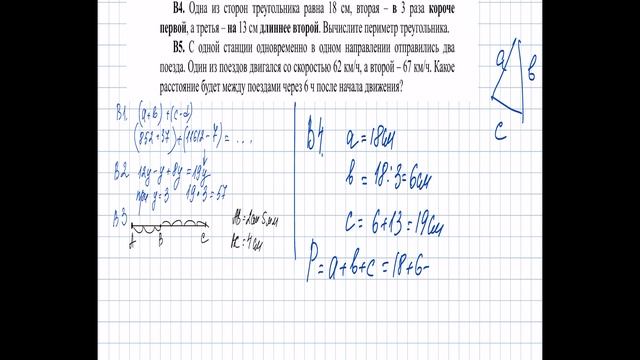 B4. Одна из сторон треугольника равна 18 см, вторая – в 3 раза короче
первой, а третья – на 13 см длиннее второй. Вычислите периметр треугольника.
B5. С одной станции одновременно в одном направлении отправились два
поезда. Один из поездов двигался со скоростью 62 км/ч, а второй – 67 км/ч. Какое
расстояние будет между поездами через 6 ч после начала движения?
a
b
c
B1. (a+b)+(c-d)
(852+37)+(11612-7)=...
B2. 12y-y+8y=19y
при y=3 19·3=57
B3
A B C
AB=2см 5мм
BC=4см
B4. a=18см
b=18:3=6см
c=6+13=19см
P=a+b+c=18+6-